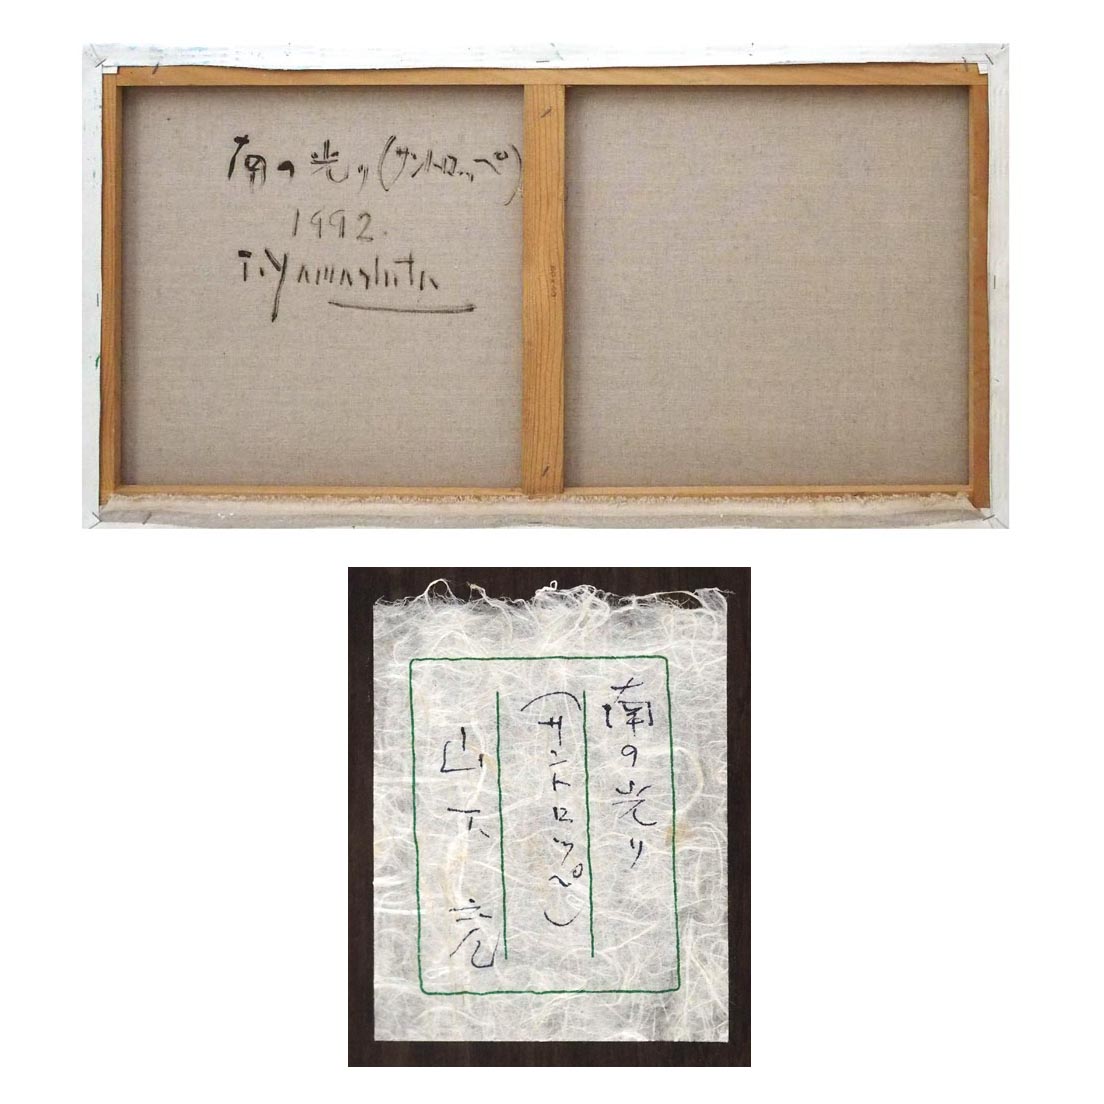 南の光り(サントロッペ)
1992.
T.Yamashita
南の光り
(サントロッペ)
山下 充